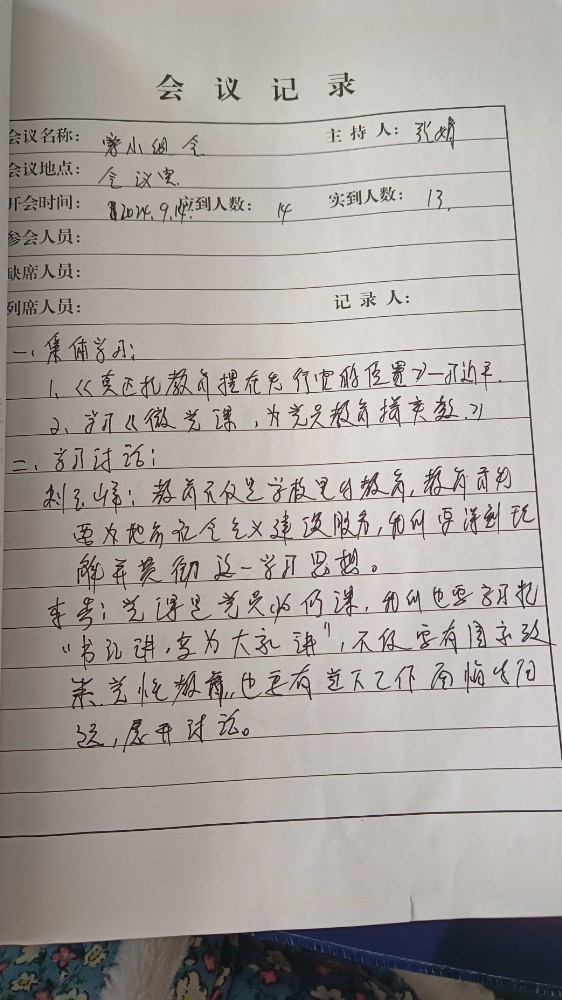 会议记录
会议名称：党小组会 主持人：张婧
会议地点：会议室
开会时间：2024.9.14. 应到人数：14 实到人数：13.
参会人员：
缺席人员：
列席人员： 记录人：
一、集体学习：
1、《真正把教育摆在先行官的位置》—习近平.
2、学习《微党课，为党员教育提实效.》
二、学习讨论：
刘玉峰：教育不仅是学校里的教育，教育育为
要为地方社会主义建设服务，我们要深刻理
解并贯彻这一学习思想。
李 ：党课是党员必修课，我们也要学习把
“书记讲，变为大家讲”，不仅要有国家政
策、党性教育，也要有立足工作 面临的问
题，展开讨论。